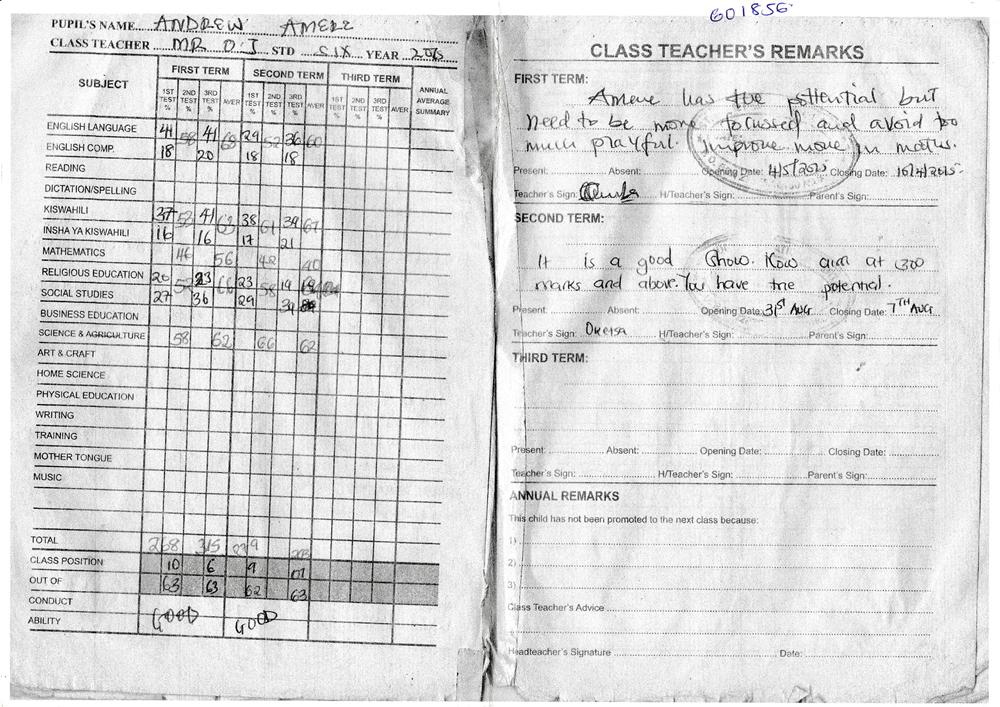 601856
PUPIL'S NAME ANDREW AMERE
CLASS TEACHER MR O.J STD SIX YEAR 2015
SUBJECT FIRST TERM SECOND TERM THIRD TERM ANNUAL AVERAGE SUMMARY
1ST TEST % 2ND TEST % 3RD TEST % AVER 1ST TEST % 2ND TEST % 3RD TEST % AVER 1ST TEST % 2ND TEST % 3RD TEST % AVER
ENGLISH LANGUAGE 41 58 41 69 29 52 36 60
ENGLISH COMP. 18 20 18 18
READING
DICTATION/SPELLING
KISWAHILI 37 53 41 63 38 61 39 67
INSHA YA KISWAHILI 16 16 17 21
MATHEMATICS 46 56 42 40
RELIGIOUS EDUCATION 20 23 66 23 58 19
SOCIAL STUDIES 27 36 29
BUSINESS EDUCATION
SCIENCE & AGRICULTURE 58 62 66 62
ART & CRAFT
HOME SCIENCE
PHYSICAL EDUCATION
WRITING
TRAINING
MOTHER TONGUE
MUSIC
TOTAL 268 315 279
CLASS POSITION 10 6 9
OUT OF 63 63 62 63
CONDUCT
ABILITY GOOD GOOD
CLASS TEACHER'S REMARKS
FIRST TERM:
Amere has the pottential but
need to be more focussed and avoid too
much playful. Improve more in maths.
Present: Absent: Opening Date: 4/5/2015 Closing Date: 16/4/2015
Teacher's Sign: H/Teacher's Sign: Parent's Sign:
SECOND TERM:
It is a good show. Now aim at 300
marks and above. You have the potential.
Present: Absent: Opening Date: 31ST AUG Closing Date: 7TH AUG
Teacher's Sign: H/Teacher's Sign: Parent's Sign:
THIRD TERM:
Present: Absent: Opening Date: Closing Date:
Teacher's Sign: H/Teacher's Sign: Parent's Sign:
ANNUAL REMARKS
This child has not been promoted to the next class because:
1)
2)
3)
Class Teacher's Advice
Headteacher's Signature Date: